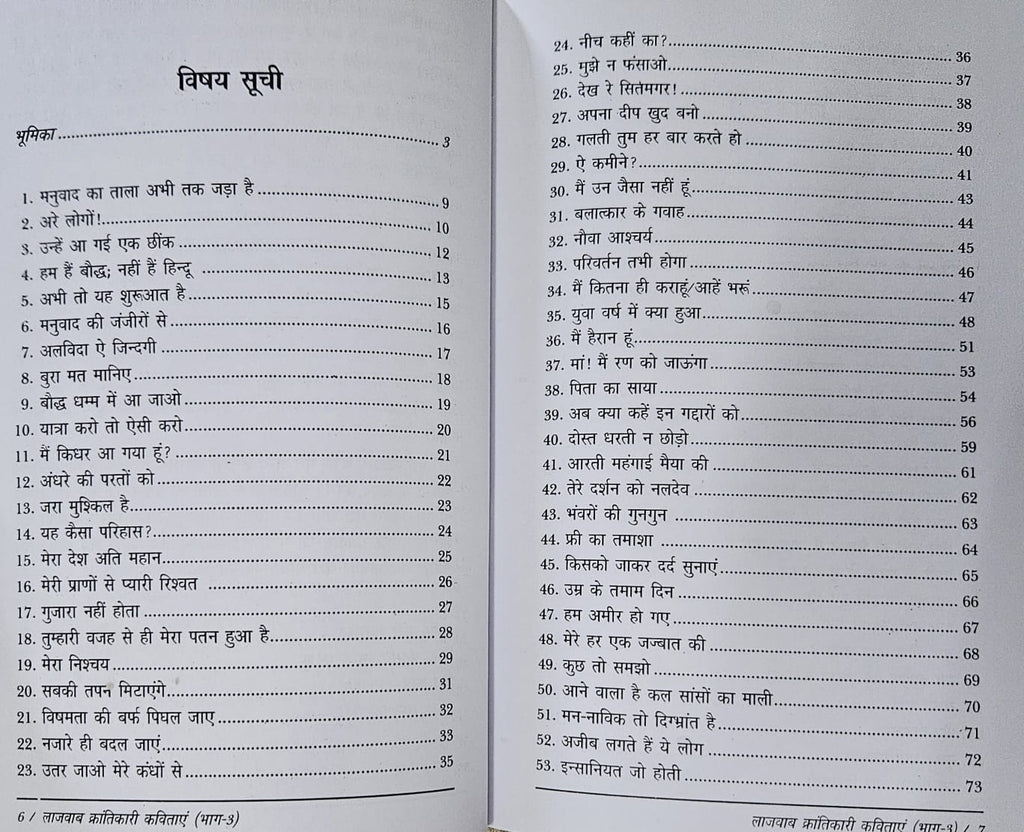 विषय सूची
भूमिका ........ 3
1. मनुवाद का ताला अभी तक जड़ा है ........ 9
2. अरे लोगों! ........ 10
3. उन्हें आ गई एक छींक ........ 12
4. हम हैं बौद्ध; नहीं हैं हिन्दू ........ 13
5. अभी तो यह शुरूआत है ........ 15
6. मनुवाद की जंजीरों से ........ 16
7. अलविदा ऐ जिन्दगी ........ 17
8. बुरा मत मानिए ........ 18
9. बौद्ध धम्म में आ जाओ ........ 19
10. यात्रा करो तो ऐसी करो ........ 20
11. मैं किधर आ गया हूं? ........ 21
12. अंधरे की परतों को ........ 22
13. जरा मुश्किल है ........ 23
14. यह कैसा परिहास? ........ 24
15. मेरा देश अति महान ........ 25
16. मेरी प्राणों से प्यारी रिश्वत ........ 26
17. गुजारा नहीं होता ........ 27
18. तुम्हारी वजह से ही मेरा पतन हुआ है ........ 28
19. मेरा निश्चय ........ 29
20. सबकी तपन मिटाएंगे ........ 31
21. विषमता की बर्फ पिघल जाए ........ 32
22. नजारे ही बदल जाएं ........ 33
23. उतर जाओ मेरे कंधों से ........ 35
6 / लाजवाब क्रांतिकारी कविताएं (भाग-3)
24. नीच कहीं का? ........ 36
25. मुझे न फंसाओ ........ 37
26. देख रे सितमगर! ........ 38
27. अपना दीप खुद बनो ........ 39
28. गलती तुम हर बार करते हो ........ 40
29. ऐ कमीने? ........ 41
30. मैं उन जैसा नहीं हूं ........ 43
31. बलात्कार के गवाह ........ 44
32. नौवा आश्चर्य ........ 45
33. परिवर्तन तभी होगा ........ 46
34. मैं कितना ही कराहूं/आहें भरूं ........ 47
35. युवा वर्ष में क्या हुआ ........ 48
36. मैं हैरान हूं ........ 51
37. मां! मैं रण को जाऊंगा ........ 53
38. पिता का साया ........ 54
39. अब क्या कहें इन गद्दारों को ........ 56
40. दोस्त धरती न छोड़ो ........ 59
41. आरती महंगाई मैया की ........ 61
42. तेरे दर्शन को नलदेव ........ 62
43. भंवरों की गुनगुन ........ 63
44. फ्री का तमाशा ........ 64
45. किसको जाकर दर्द सुनाएं ........ 65
46. उम्र के तमाम दिन ........ 66
47. हम अमीर हो गए ........ 67
48. मेरे हर एक जज्बात की ........ 68
49. कुछ तो समझो ........ 69
50. आने वाला है कल सांसों का माली ........ 70
51. मन-नाविक तो दिग्भ्रांत है ........ 71
52. अजीब लगते हैं ये लोग ........ 72
53. इन्सानियत जो होती ........ 73
लाजवाब क्रांतिकारी कविताएं (भाग-3) / 7